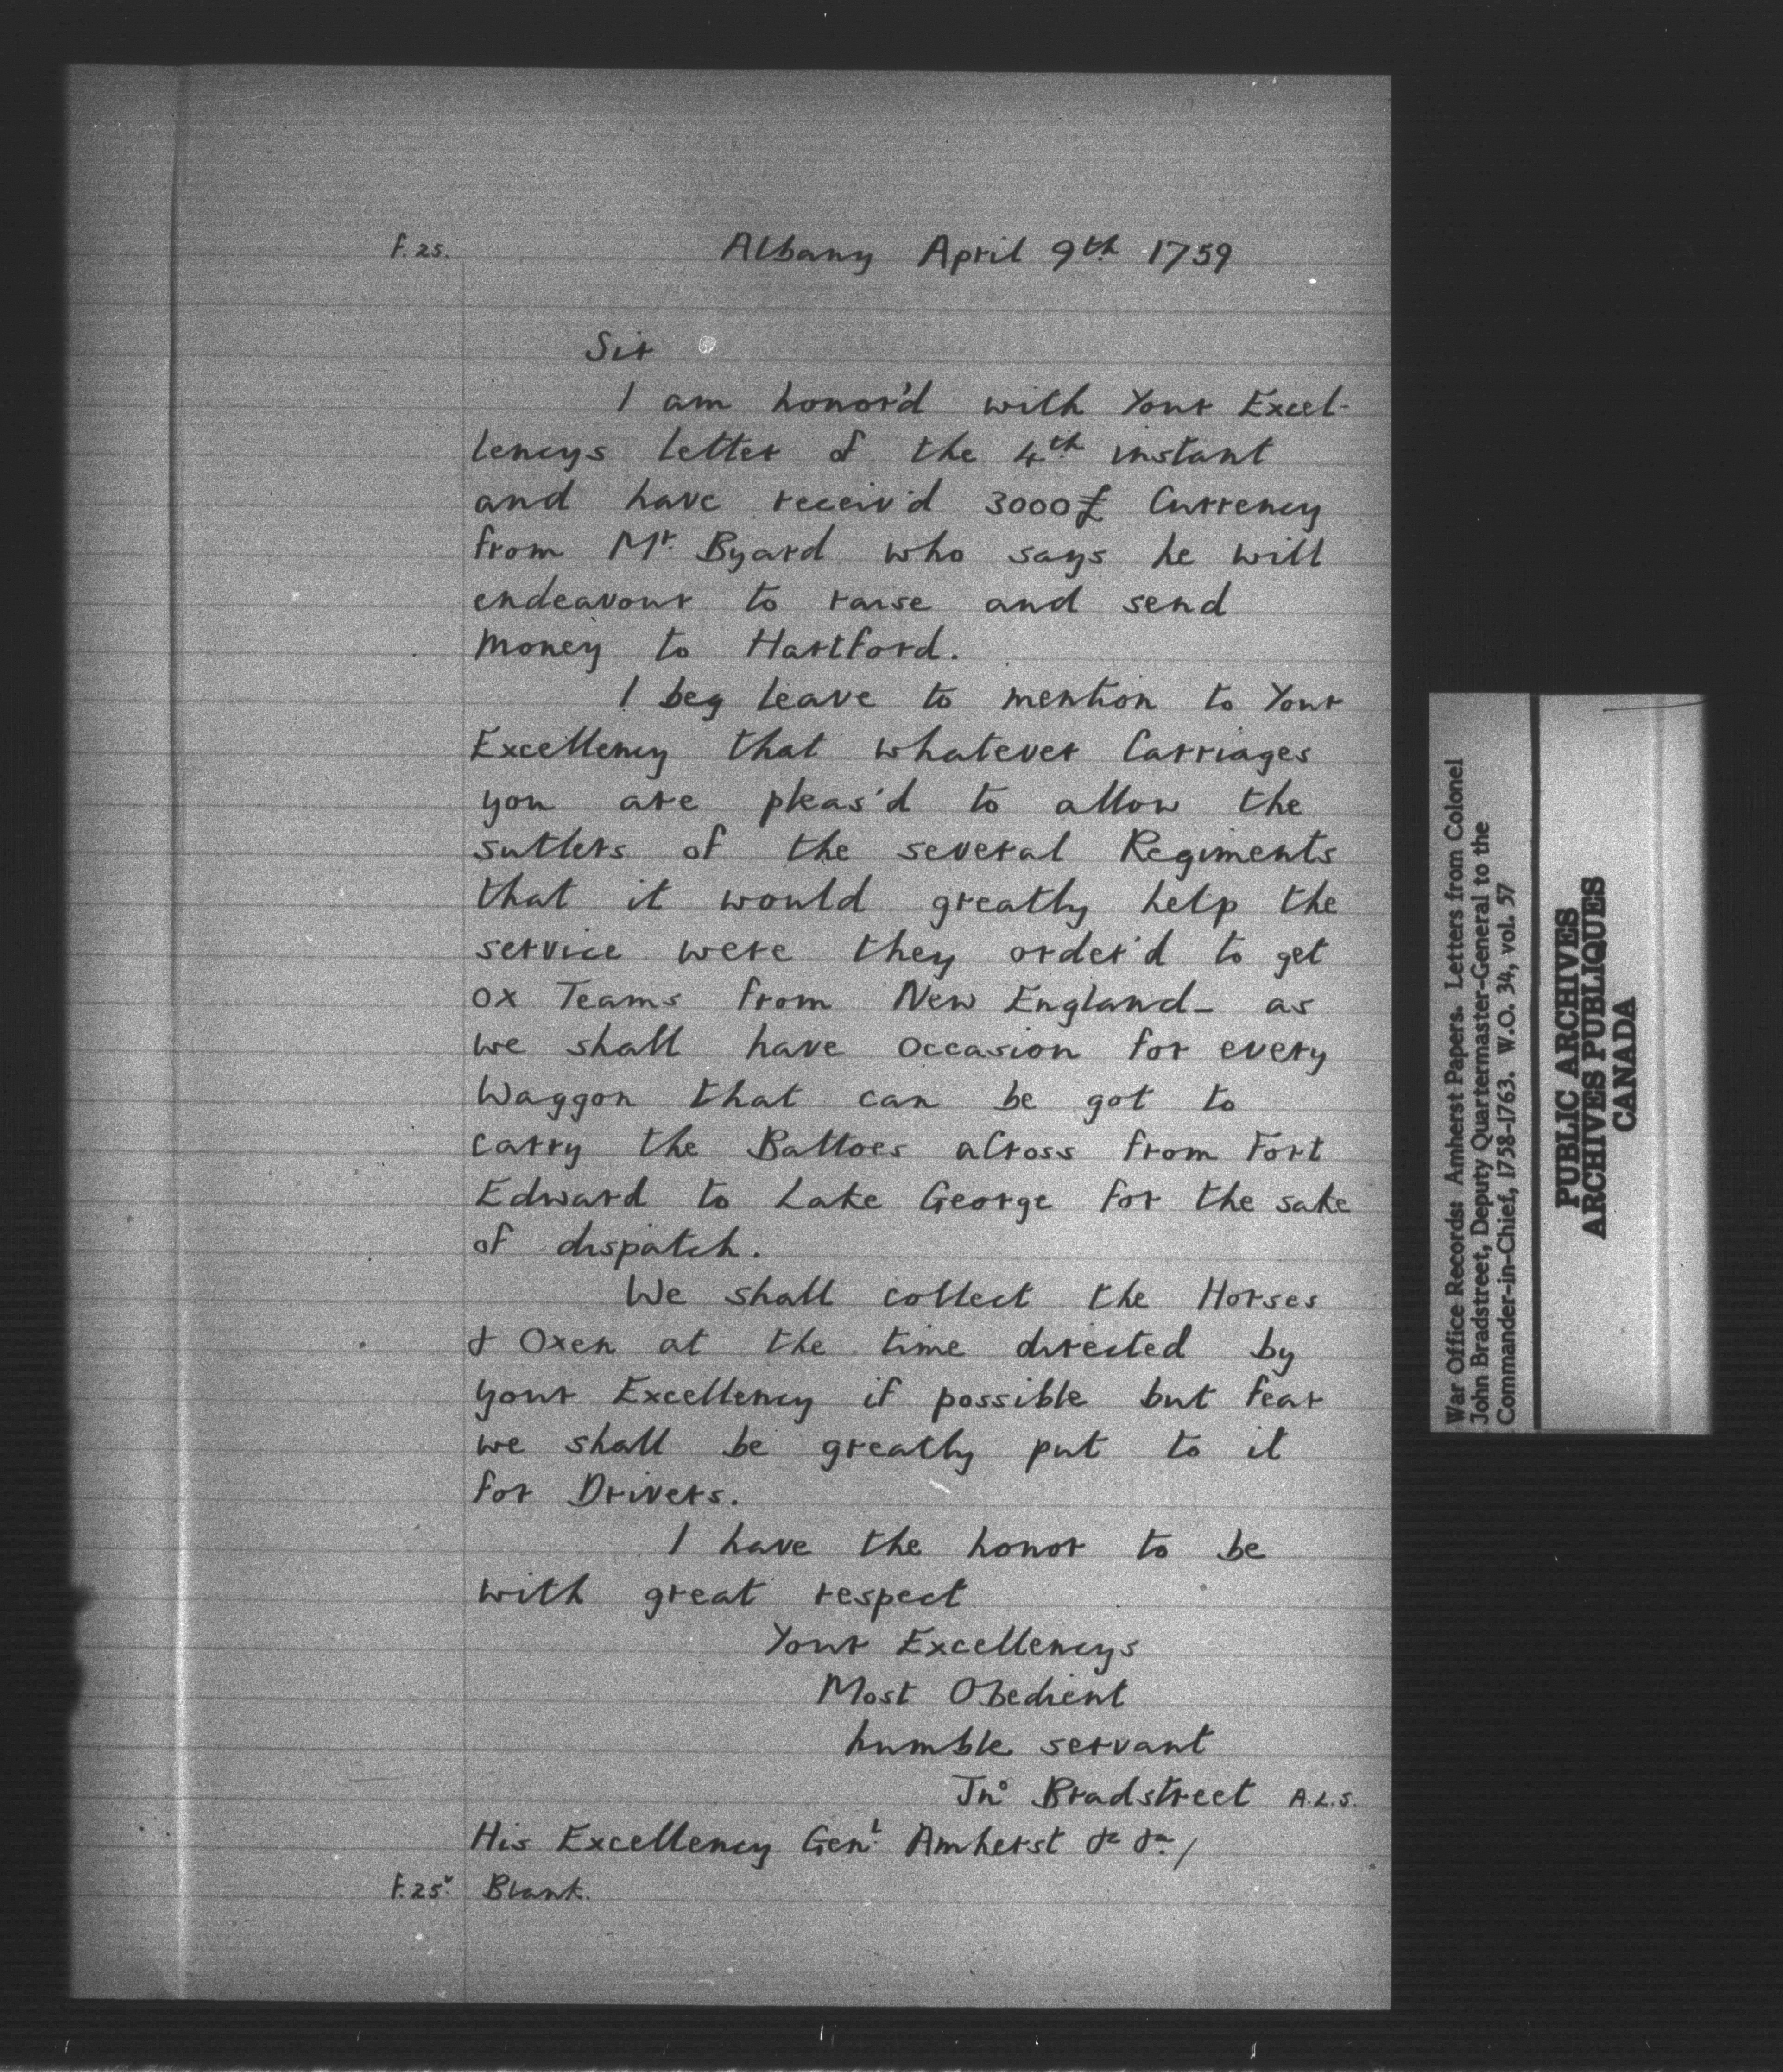 f. 25.
Albany April 9th 1759
Sir
I am honor'd with Your Excel-
lencys letter of the 4th instant
and have receiv'd 3000£ Currency
from Mr. Byard who says he will
endeavour to raise and send
Money to Hartford.
I beg leave to mention to Your
Excellency that whatever Carriages
you are pleas'd to allow the
sutlers of the several Regiments
that it would greatly help the
service were they order'd to get
ox Teams from New England – as
we shall have occasion for every
Waggon that can be got to
carry the Battoes across from Fort
Edward to Lake George for the sake
of dispatch.
We shall collect the Horses
& Oxen at the time directed by
your Excellency if possible but fear
we shall be greatly put to it
for Drivers.
I have the honor to be
with great respect
Your Excellencys
Most Obedient
humble servant
Jno Bradstreet A.L.S.
His Excellency Genl. Amherst &c &c /
f. 25v. Blank.
War Office Records: Amherst Papers. Letters from Colonel
John Bradstreet, Deputy Quartermaster-General to the
Commander-in-Chief, 1758-1763. W.O. 34, vol. 57
PUBLIC ARCHIVES
ARCHIVES PUBLIQUES
CANADA